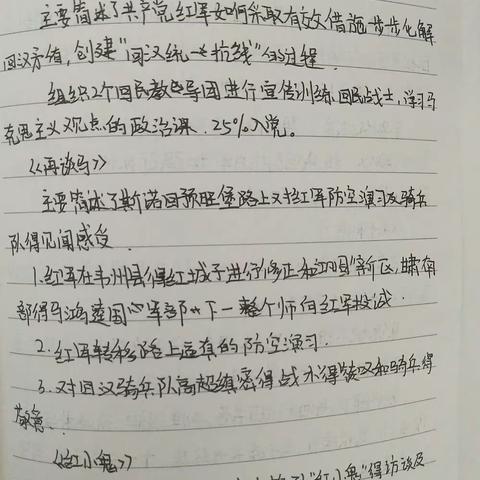 主要简述了共产党红军如何采取有效措施步步化解
回汉矛盾，创建"回汉统一抗线"的过程.
组织2个回民教导团进行宣传训练回民战士，学习马
克思主义观点的政治课.25%入党。
《再谈马》
主要简述了斯诺回预旺堡路上对红军防空演习及骑兵
队得见闻感受.
1.红军在韦州县得红城子进行修正和江回新区，
部得马鸿逵国军部下一整个师向红军投诚.
2.红军转移路上逼真的防空演习.
3.对回汉骑兵队高超缜密得战术得和骑兵得
《红小鬼》
"红小鬼"得访谈及